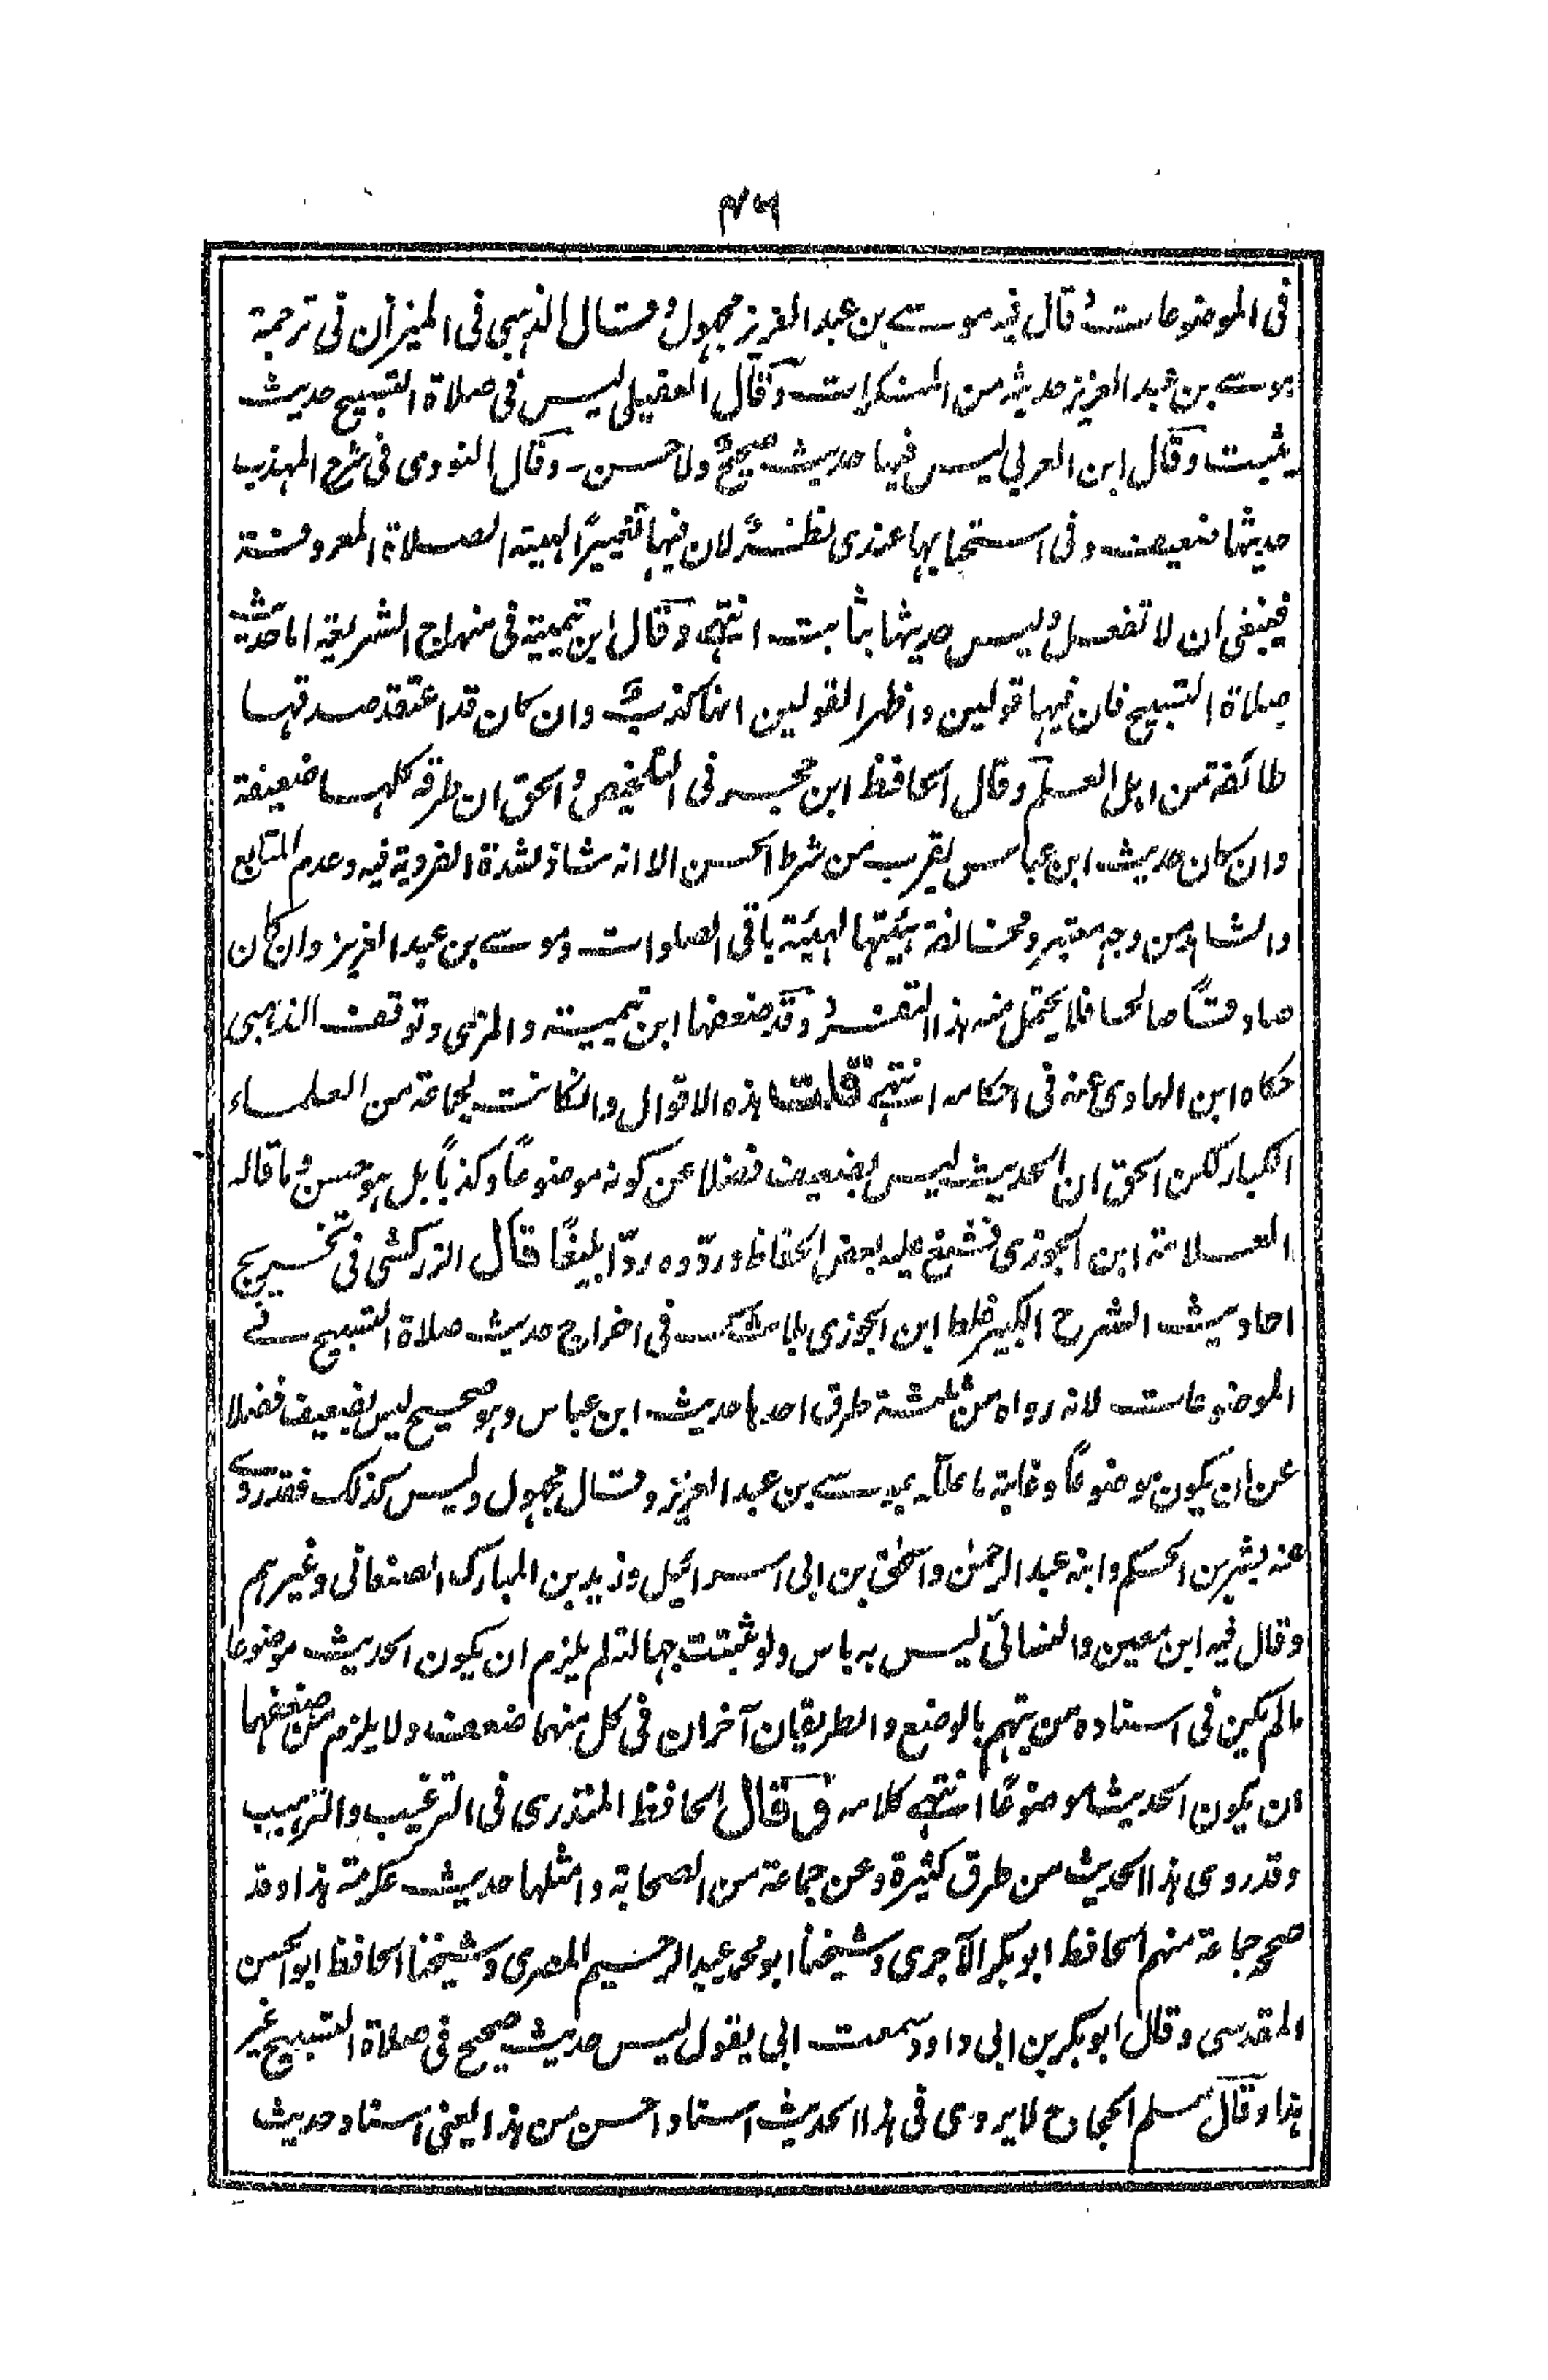 في الموضوعات وقال فيه موسى بن عبد العزيز مجهول وقال الذهبي في الميزان في ترجمة
موسى بن عبد العزيز حديثه من المنكرات وقال العقيلي ليس في صلاة التسبيح حديث
يثبت وقال ابن العربي ليس فيها حديث صحيح ولا حسن - وقال النووي في شرح المهذب
حديثها ضعيف وفي استحبابها عندي نظر لان فيها تغييرًا لهيئة الصلاة المعروفة
فينبغي ان لا تفعل وليس حديثها بثابت انتهى وقال ابن تيمية في منهاج الشريعة اما حديث
صلاة التسبيح فان فيها قولين واظهر القولين انها كذب وان كان قد اعتقد صدقها
طائفة من اهل العلم وقال الحافظ ابن حجر في التلخيص والحق ان طرقه كلها ضعيفة
وان كان حديث ابن عباس يقرب من شرط الحسن الا انه شاذ لشدة الفردية فيه وعدم المتابع
والشاهد من وجه معتبر ومخالفة هيئتها لهيئة باقي الصلوات وموسى بن عبد العزيز وان كان
صادقًا صالحا فلا يحتمل منه هذا التفرد وقد ضعفها ابن تيمية والمزي وتوقف الذهبي
حكاه ابن الهادي عنه في احكامه انتهى قلت هذه الاقوال وان كانت لجماعة من العلماء
الكبار لكن الحق ان الحديث ليس بضعيف فضلا عن كونه موضوعًا وكذبًا بل هو حسن وما قاله
العلامة ابن الجوزي فشنع عليه بعض الحفاظ وردّوه ردّا بليغًا قال الزركشي في تخريج
احاديث الشرح الكبير غلط ابن الجوزي بلا شك في اخراج حديث صلاة التسبيح في
الموضوعات لانه رواه من ثلثة طرق احدها حديث ابن عباس وهو صحيح ليس بضعيف فضلا
عن ان يكون موضوعًا وغاية ما علله بموسى بن عبد العزيز وقال مجهول وليس كذلك فقد روى
عنه بشر بن الحكم وابنه عبد الرحمن واسحق بن ابي اسرائيل وزيد بن المبارك الصنعاني وغيرهم
وقال فيه ابن معين والنسائي ليس به باس ولو ثبتت جهالته لم يلزم ان يكون الحديث موضوعا
مالم يكن في اسناده من يتهم بالوضع والطريقان آخران في كل منهما ضعف ولا يلزم من ضعفهما
ان يكون الحديث موضوعًا انتهى كلامه وقال الحافظ المنذري في الترغيب والترهيب
وقد روى هذا الحديث من طرق كثيرة وعن جماعة من الصحابة وامثلها حديث عكرمة هذا وقد
صححه جماعة منهم الحافظ ابو بكر الآجري وشيخنا ابو محمد عبد الرحيم المصري وشيخنا الحافظ ابو الحسن
المقدسي وقال ابو بكر بن ابي داود سمعت ابي يقول ليس حديث صحيح في صلاة التسبيح غير
هذا وقال مسلم الحجاج لا يروى في هذا الحديث اسناد احسن من هذا يعني اسناد حديث